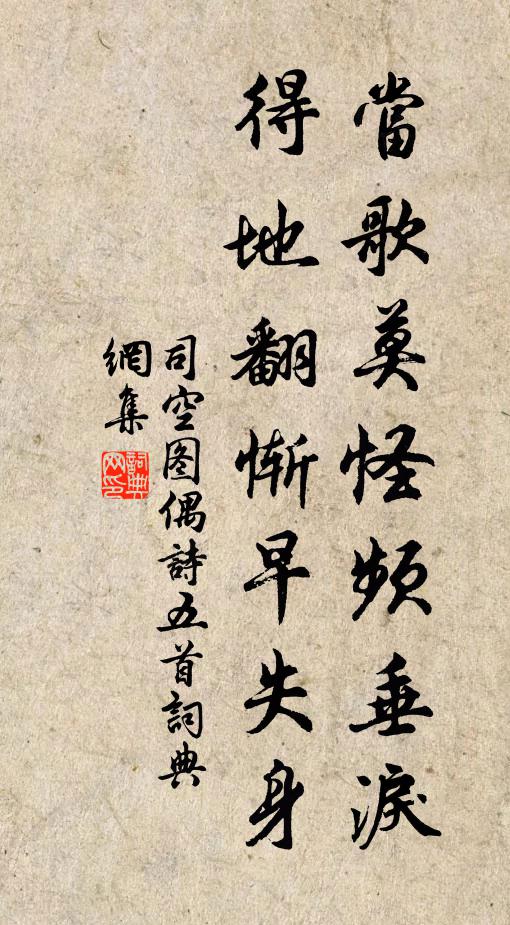 當歌莫怪頻垂淚
得地翻慚早失身
司空图偶詩五首詞典
網集
詞典網印